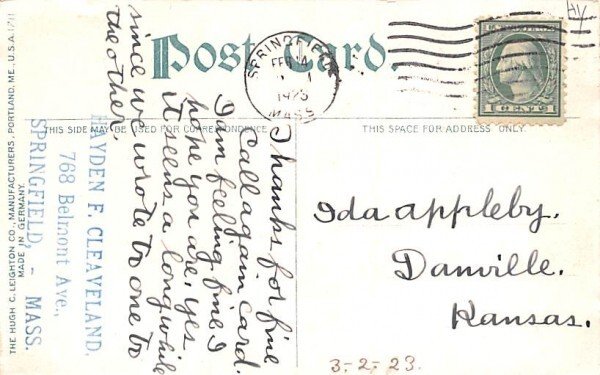 Post Card.
SPRINGFIELD
FEB 14
1923
MASS.
1 CENT 1
THIS SIDE MAY BE USED FOR CORRESPONDENCE
THIS SPACE FOR ADDRESS ONLY.
Thanks for fine
Call again card.
I am feeling fine I
hope you are, yes
it seens a long while
since we wrote to one to
the other.
Ida Appleby.
Danville.
Kansas.
3-2-23.
HAYDEN F. CLEAVELAND.
768 Belmont Ave.,
SPRINGFIELD, - MASS.
THE HUGH C. LEIGHTON CO., MANUFACTURERS, PORTLAND, ME., U.S.A.
MADE IN GERMANY.